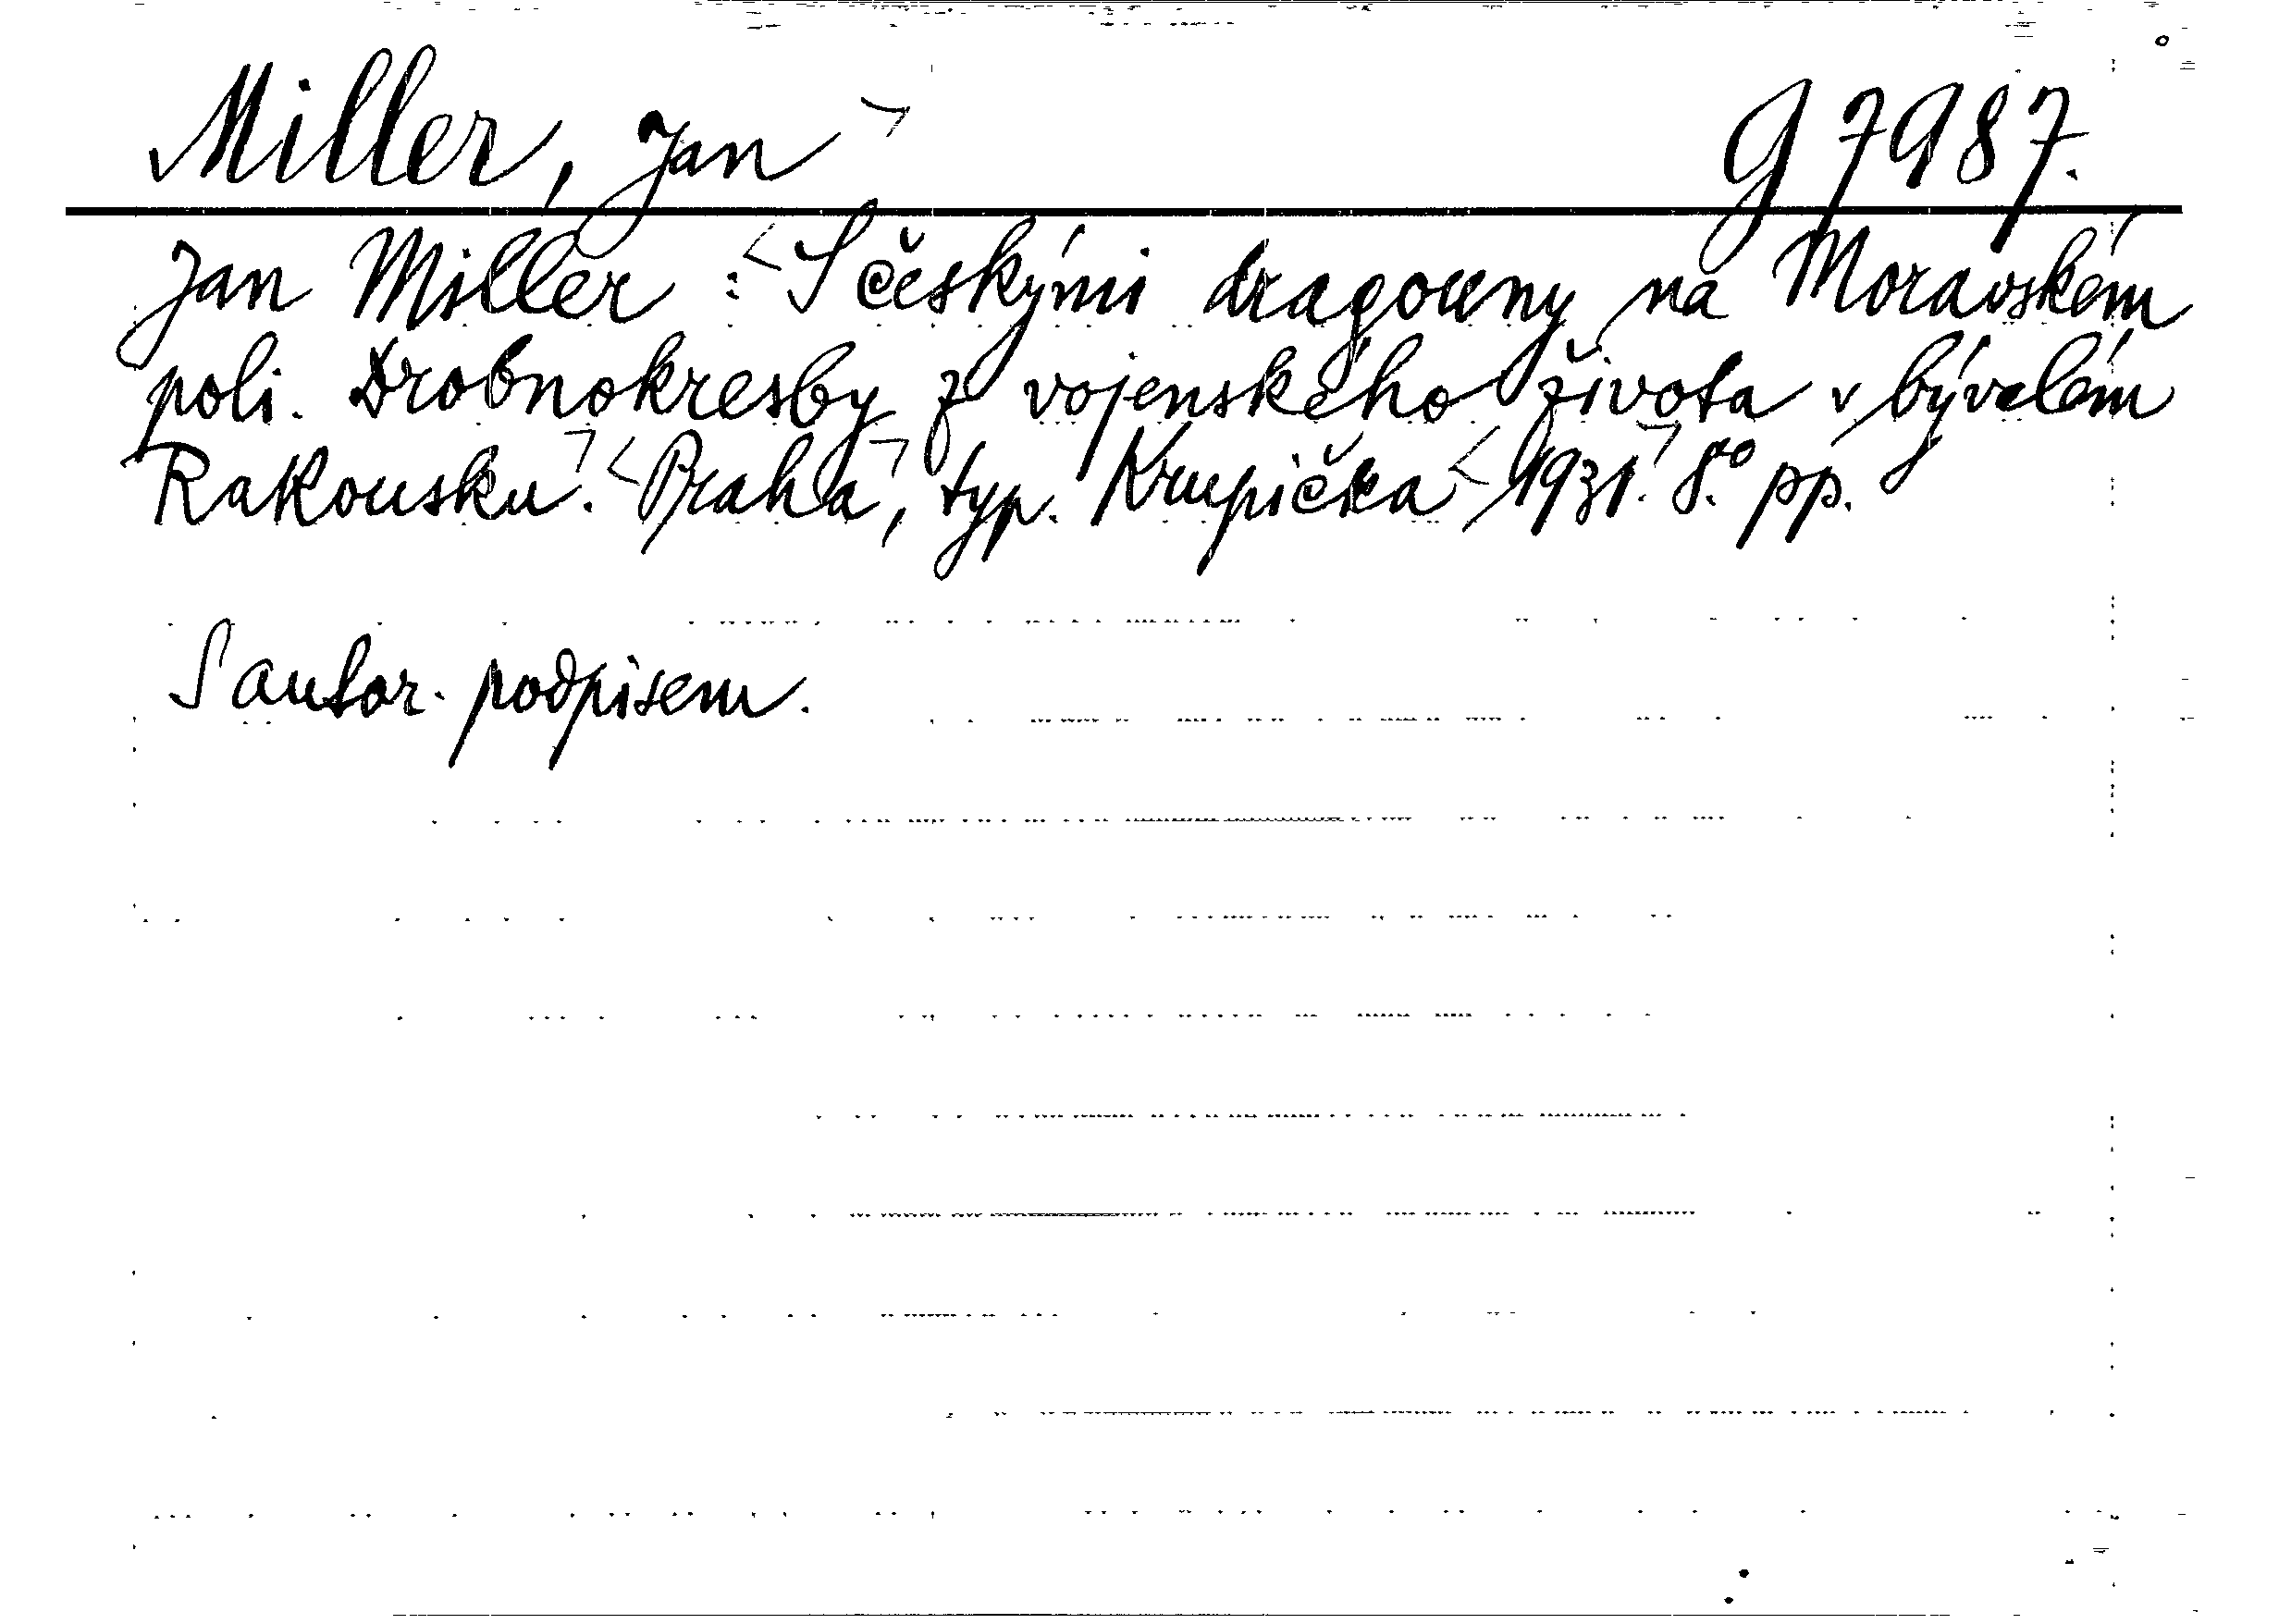 Miller, Jan g 7987.
Jan Miller : S českými dragouny na Moravském
poli. Drobnokresby z vojenského života v bývalém
Rakousku. Praha, typ. Krupička 1931. 8.° pp.
S autor. podpisem.